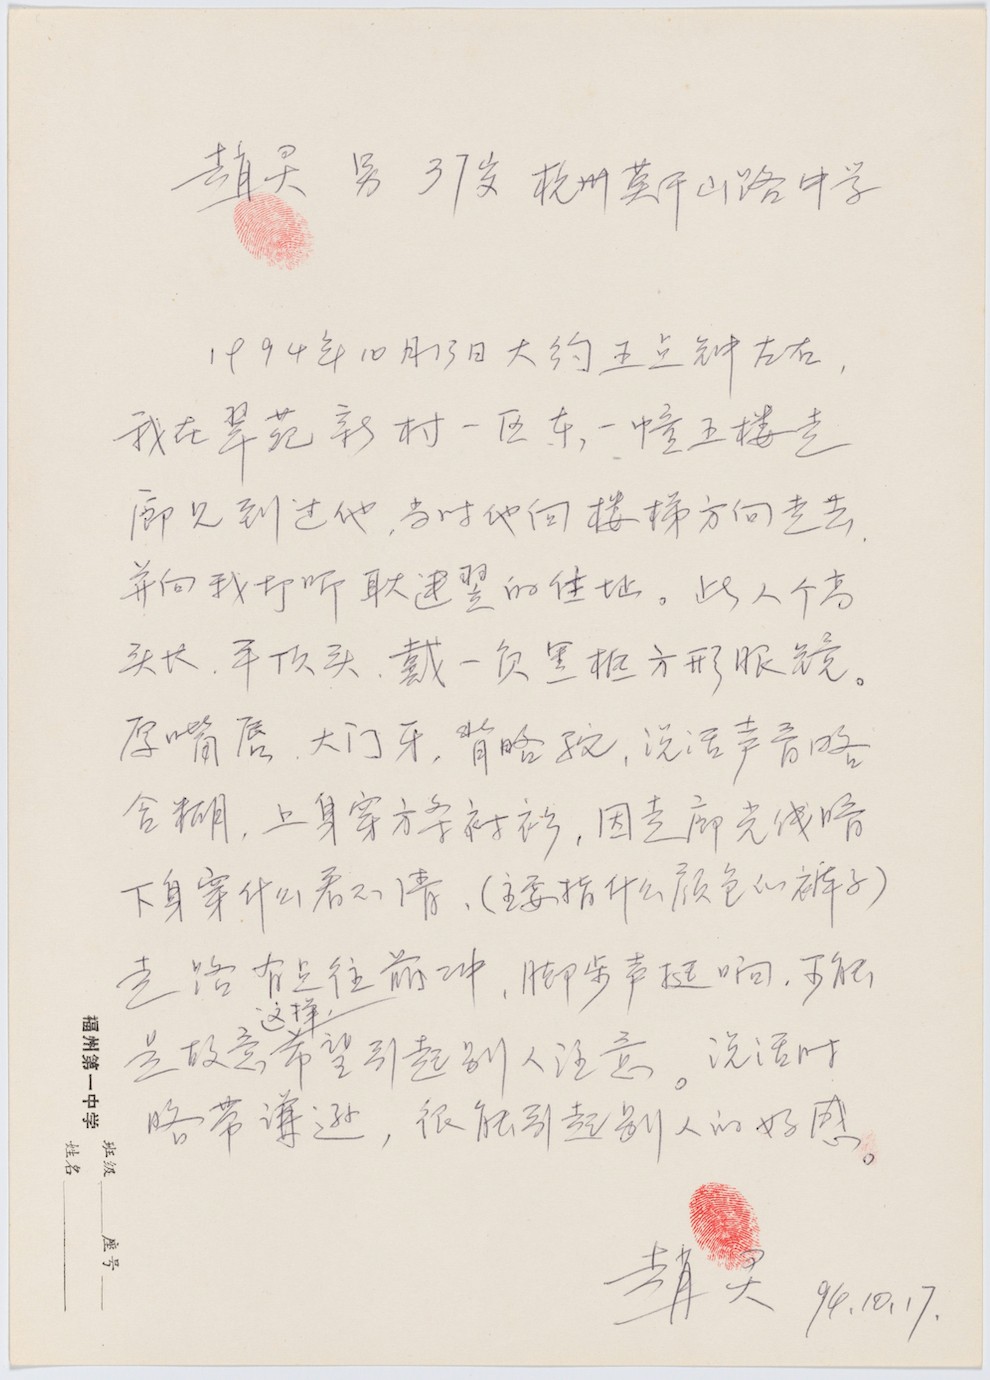 趙灵 男 37岁 杭州莫干山路中学
1994年10月13日大约五点钟左右，
我在翠苑新村一区东一幢五楼走
廊见到过他，当时他向楼梯方向走去，
并向我打听耿建翌的住址。此人个高
头长，平顶头，戴一负黑框方形眼镜。
厚嘴唇，大门牙，背略驼，说话声音略
含糊，上身穿方条衬衫，因走廊光线暗
下身穿什么看不清、（主要指什么颜色的裤子）
走路有点往前冲，脚步声挺响，可能
是故意这样，希望引起别人注意。说话时
略带谦逊，很能引起别人的好感。
趙灵 94.10.17.
福州第一中学
班级 座号
姓名